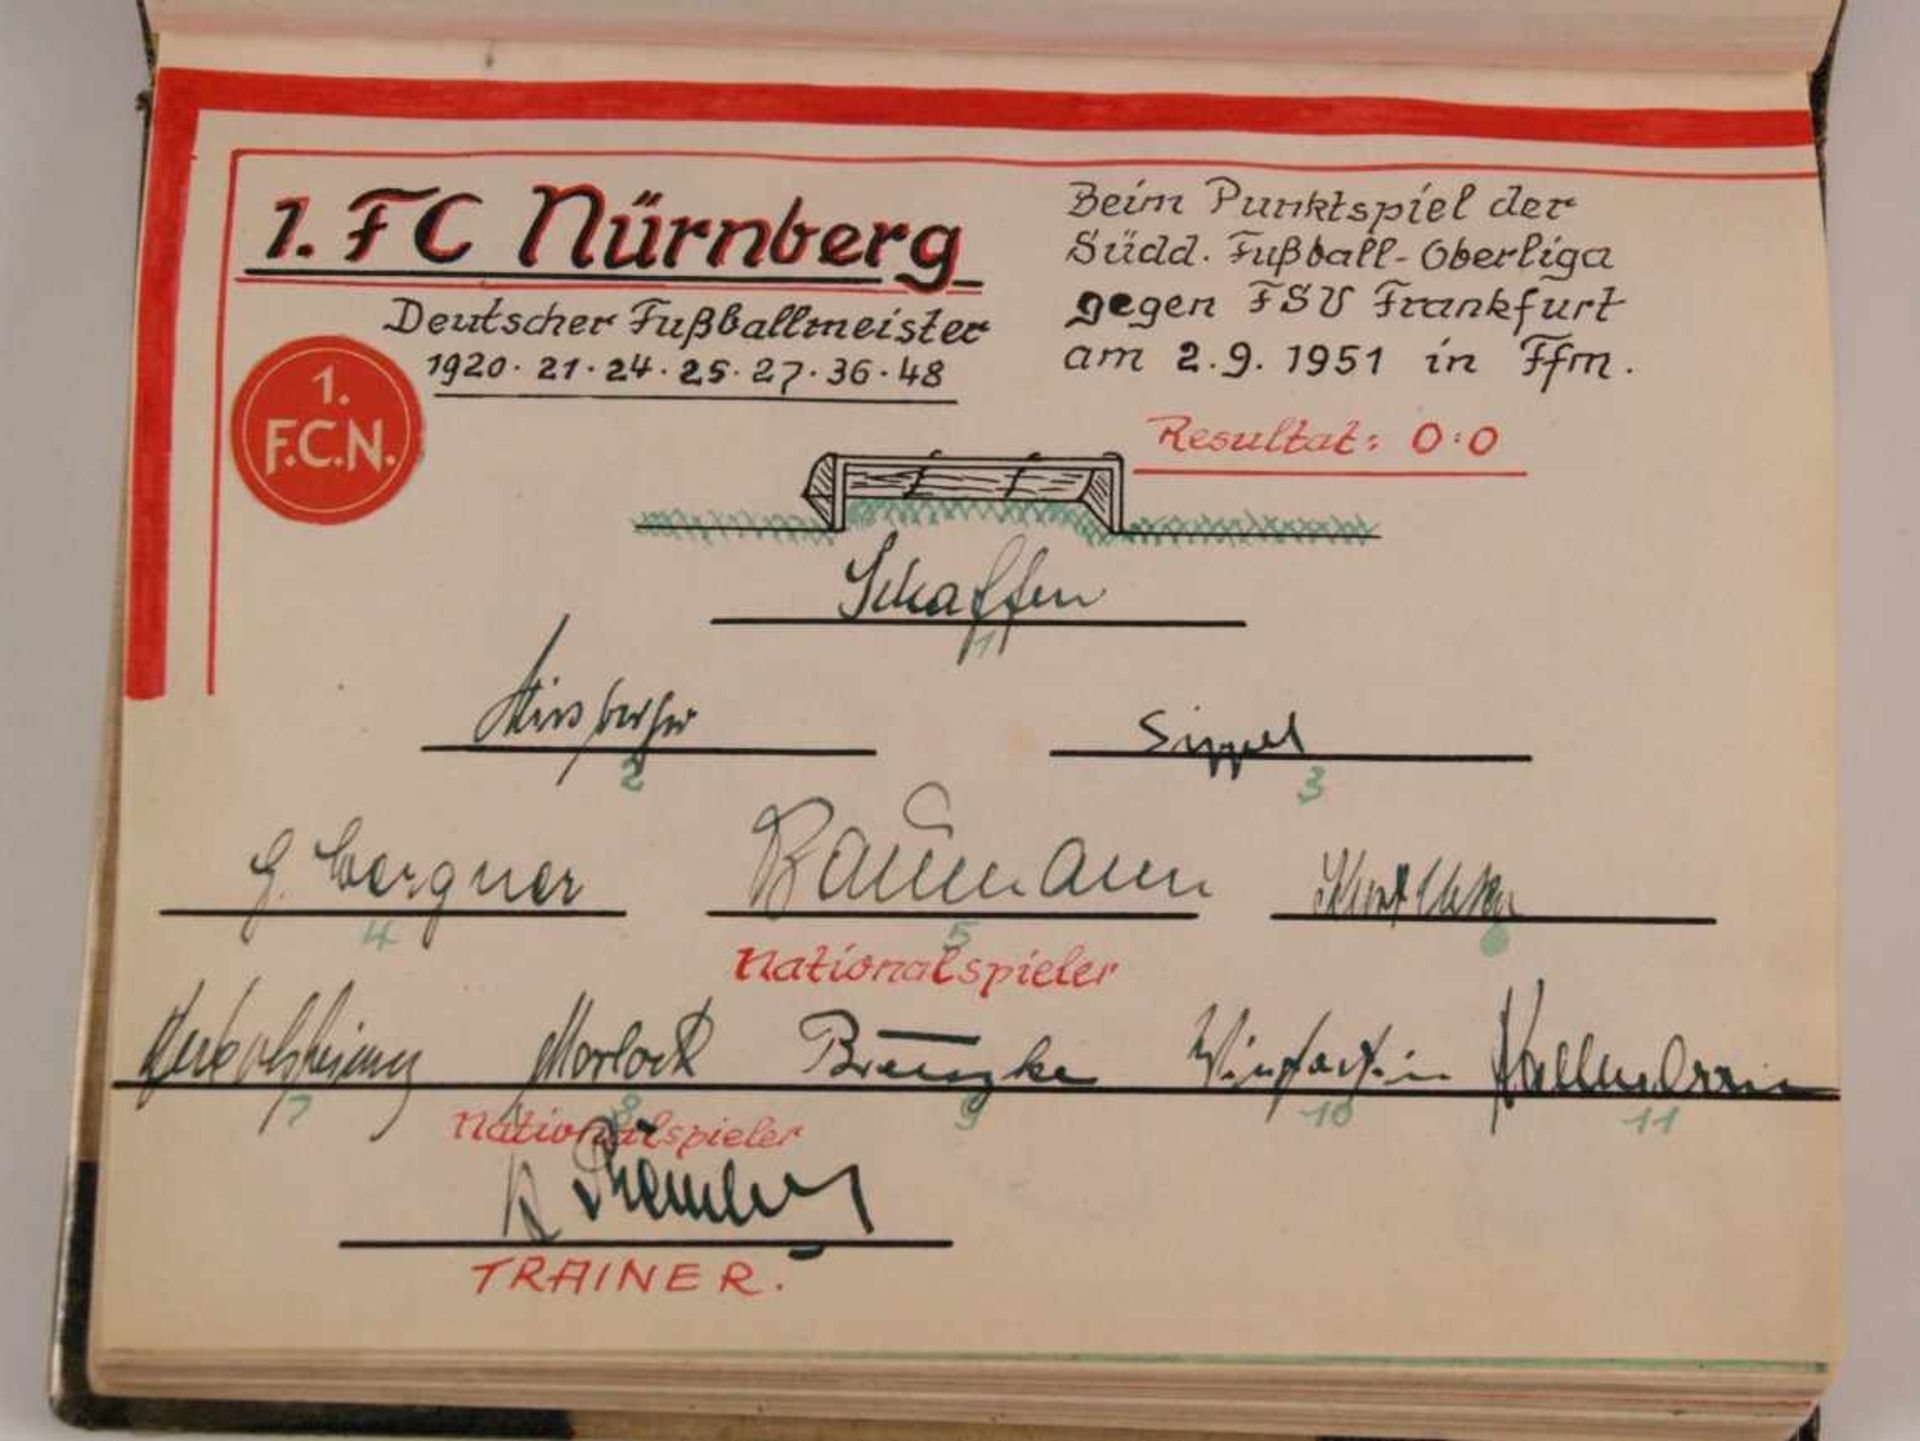 1. FC Nürnberg
Deutscher Fußballmeister
1920 · 21 · 24 · 25 · 27 · 36 · 48
1.
F.C.N.
Beim Punktspiel der
Südd. Fußball-Oberliga
gegen FSV Frankfurt
am 2.9.1951 in Ffm.
Resultat: 0:0
1
2
Sippel
3
G. Bergner
4
Baumann
5
Nationalspieler
Herbolsheimer
7
Morlock
8
Nationalspieler
Brenzke
9
Winterstein
10
Kallenborn
11
TRAINER.